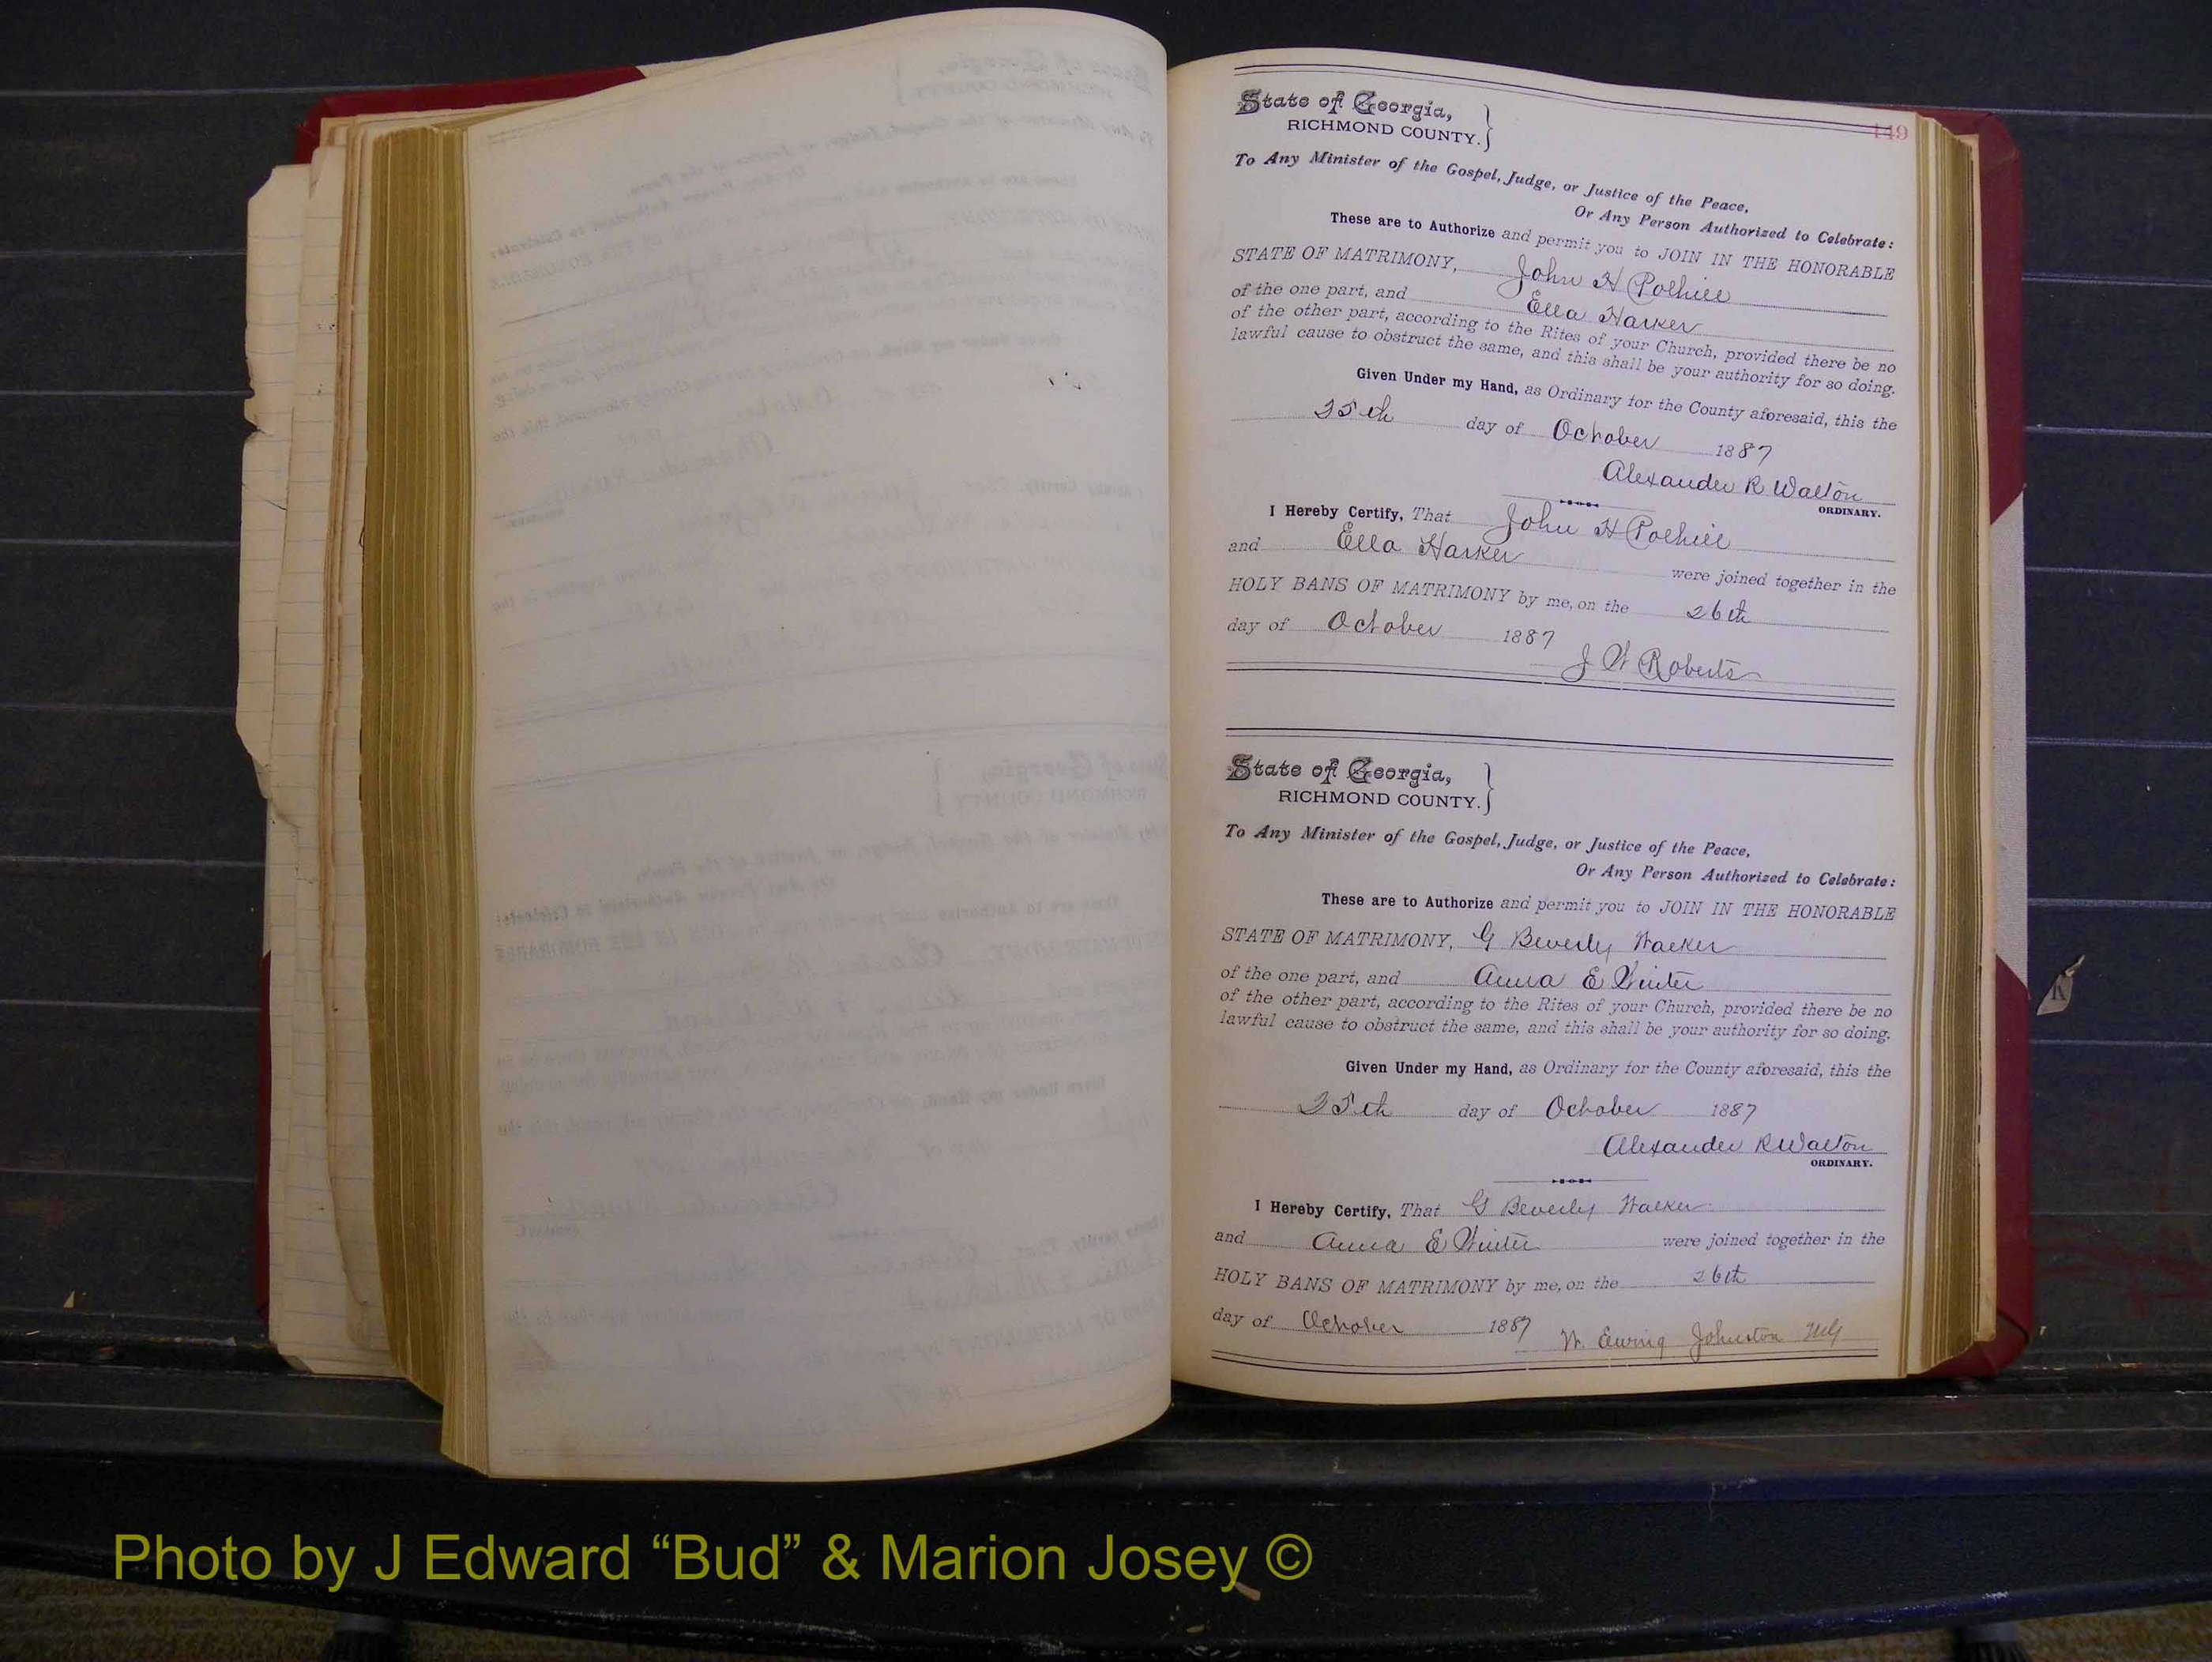 149
State of Georgia,
RICHMOND COUNTY.
To Any Minister of the Gospel, Judge, or Justice of the Peace,
Or Any Person Authorized to Celebrate:
These are to Authorize and permit you to JOIN IN THE HONORABLE
STATE OF MATRIMONY, John H Polhill
of the one part, and Ella Harker
of the other part, according to the Rites of your Church, provided there be no
lawful cause to obstruct the same, and this shall be your authority for so doing.
Given Under my Hand, as Ordinary for the County aforesaid, this the
25th day of October 1887
Alexander R Walton
ORDINARY.
I Hereby Certify, That John H Polhill
and Ella Harker were joined together in the
HOLY BANS OF MATRIMONY by me, on the 26th
day of October 1887
J W Roberts
State of Georgia,
RICHMOND COUNTY.
To Any Minister of the Gospel, Judge, or Justice of the Peace,
Or Any Person Authorized to Celebrate:
These are to Authorize and permit you to JOIN IN THE HONORABLE
STATE OF MATRIMONY, G Beverly Walker
of the one part, and Anna E Winter
of the other part, according to the Rites of your Church, provided there be no
lawful cause to obstruct the same, and this shall be your authority for so doing.
Given Under my Hand, as Ordinary for the County aforesaid, this the
25th day of October 1887
Alexander R Walton
ORDINARY.
I Hereby Certify, That G Beverly Walker
and Anna E Winter were joined together in the
HOLY BANS OF MATRIMONY by me, on the 26th
day of October 1887
W. Ewing Johnston MG
Photo by J Edward “Bud” & Marion Josey ©